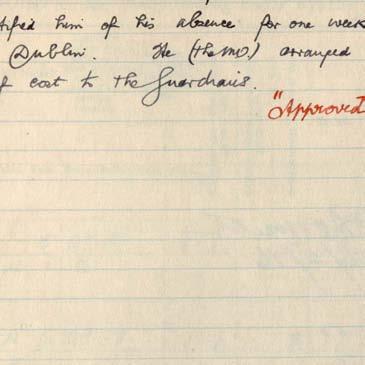 tified him of his absence for one week
Dublin. He (the M.O.) arranged
f cost to the Guardians.
"Approved